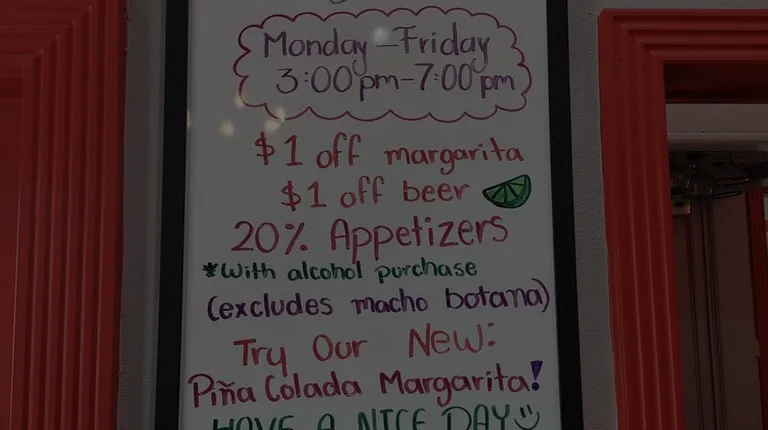 Monday-Friday
3:00pm-7:00pm
$1 off margarita
$1 off beer
20% Appetizers
*With alcohol purchase
(excludes macho botana)
Try Our New:
Piña Colada Margarita!
HAVE A NICE DAY